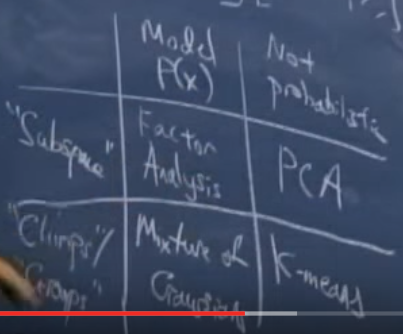 Model
P(x)
Not
probabilistic
"Subspace"
Factor
Analysis
PCA
"Clumps"/
"Groups"
Mixture of
Gaussians
K-means